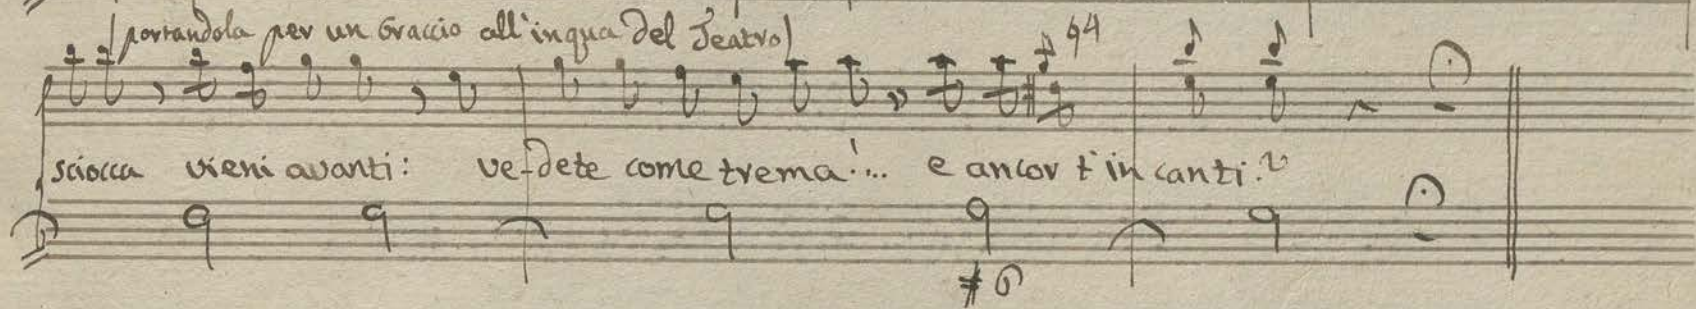 (portandola per un braccio all'inqua del Teatro)
sciocca vieni avanti: ve-dete come trema!... e ancor t'in canti:?
#6